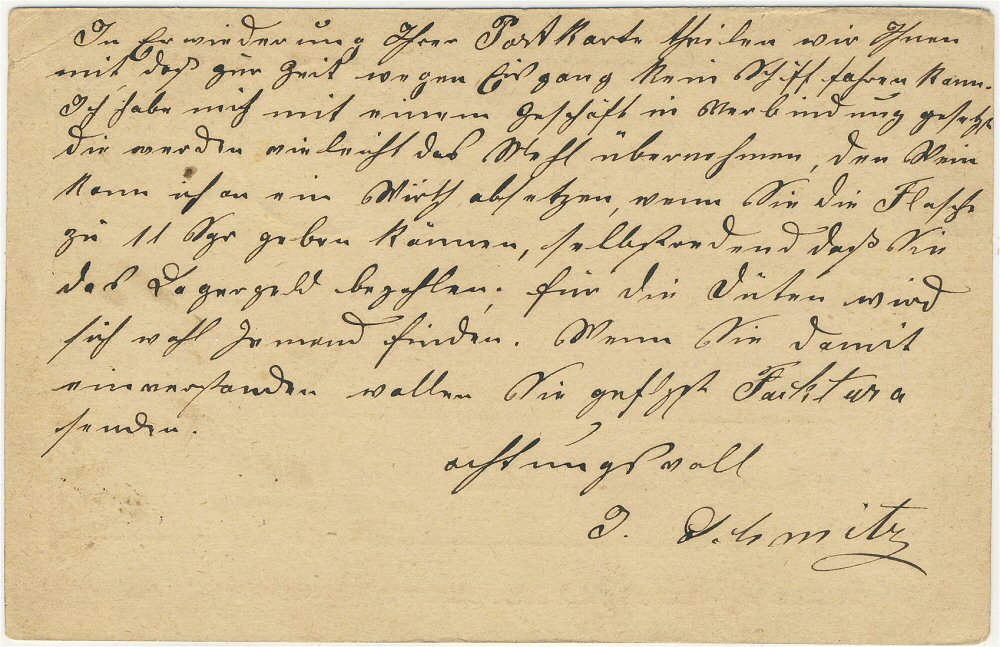 In Erwiederung Ihrer Postkarte theilen wir Ihnen
mit, daß zur Zeit wegen Eisgang kein Schiff fahren kann.
Ich habe mich mit einem Geschäft in Verbindung gesetzt
die werden vieleicht das Mehl übernehmen, den Wein
kann ich an ein Wirth absetzen, wenn Sie die Flasche
zu 11 Sgr geben können, selbstredend daß Sie
das Lagergeld bezahlen; für die Düten wird
sich wohl Jemand finden. Wenn Sie damit
einverstanden wollen Sie geflgst Facktura
senden.
achtungsvoll
J. Schmitz